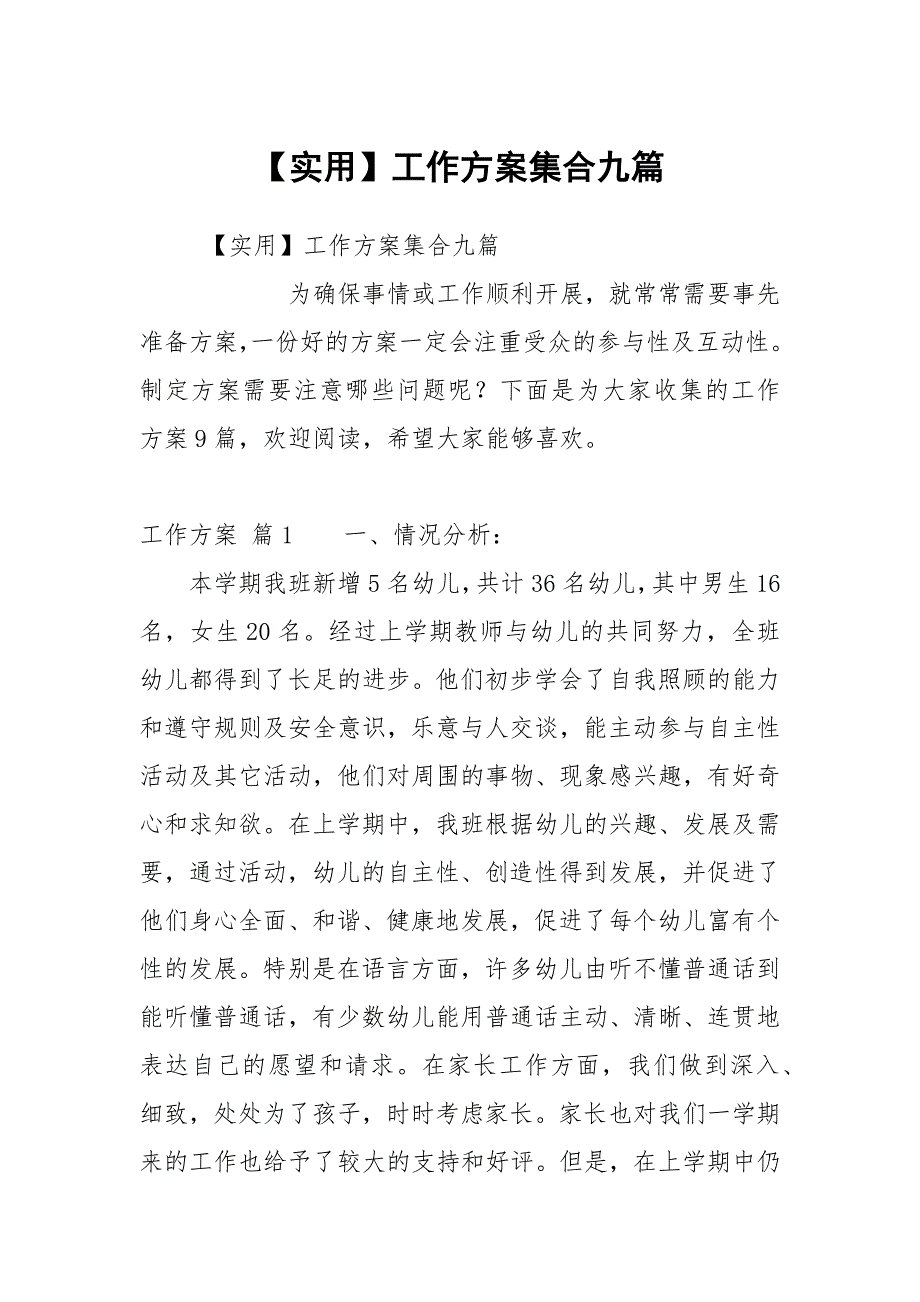 【实用】工作方案集合九篇
【实用】工作方案集合九篇
为确保事情或工作顺利开展，就常常需要事先
准备方案，一份好的方案一定会注重受众的参与性及互动性。
制定方案需要注意哪些问题呢？下面是为大家收集的工作
方案9篇，欢迎阅读，希望大家能够喜欢。
工作方案 篇1 一、情况分析：
本学期我班新增5名幼儿，共计36名幼儿，其中男生16
名，女生20名。经过上学期教师与幼儿的共同努力，全班
幼儿都得到了长足的进步。他们初步学会了自我照顾的能力
和遵守规则及安全意识，乐意与人交谈，能主动参与自主性
活动及其它活动，他们对周围的事物、现象感兴趣，有好奇
心和求知欲。在上学期中，我班根据幼儿的兴趣、发展及需
要，通过活动，幼儿的自主性、创造性得到发展，并促进了
他们身心全面、和谐、健康地发展，促进了每个幼儿富有个
性的发展。特别是在语言方面，许多幼儿由听不懂普通话到
能听懂普通话，有少数幼儿能用普通话主动、清晰、连贯地
表达自己的愿望和请求。在家长工作方面，我们做到深入、
细致，处处为了孩子，时时考虑家长。家长也对我们一学期
来的工作也给予了较大的支持和好评。但是，在上学期中仍